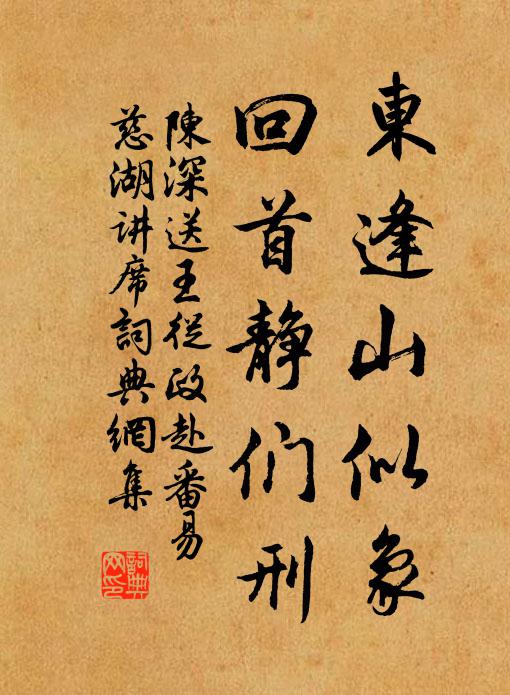 東逢山似象
回首静们刑
陳深送王從政赴番易
慈湖讲席詞典網集
詞典网印